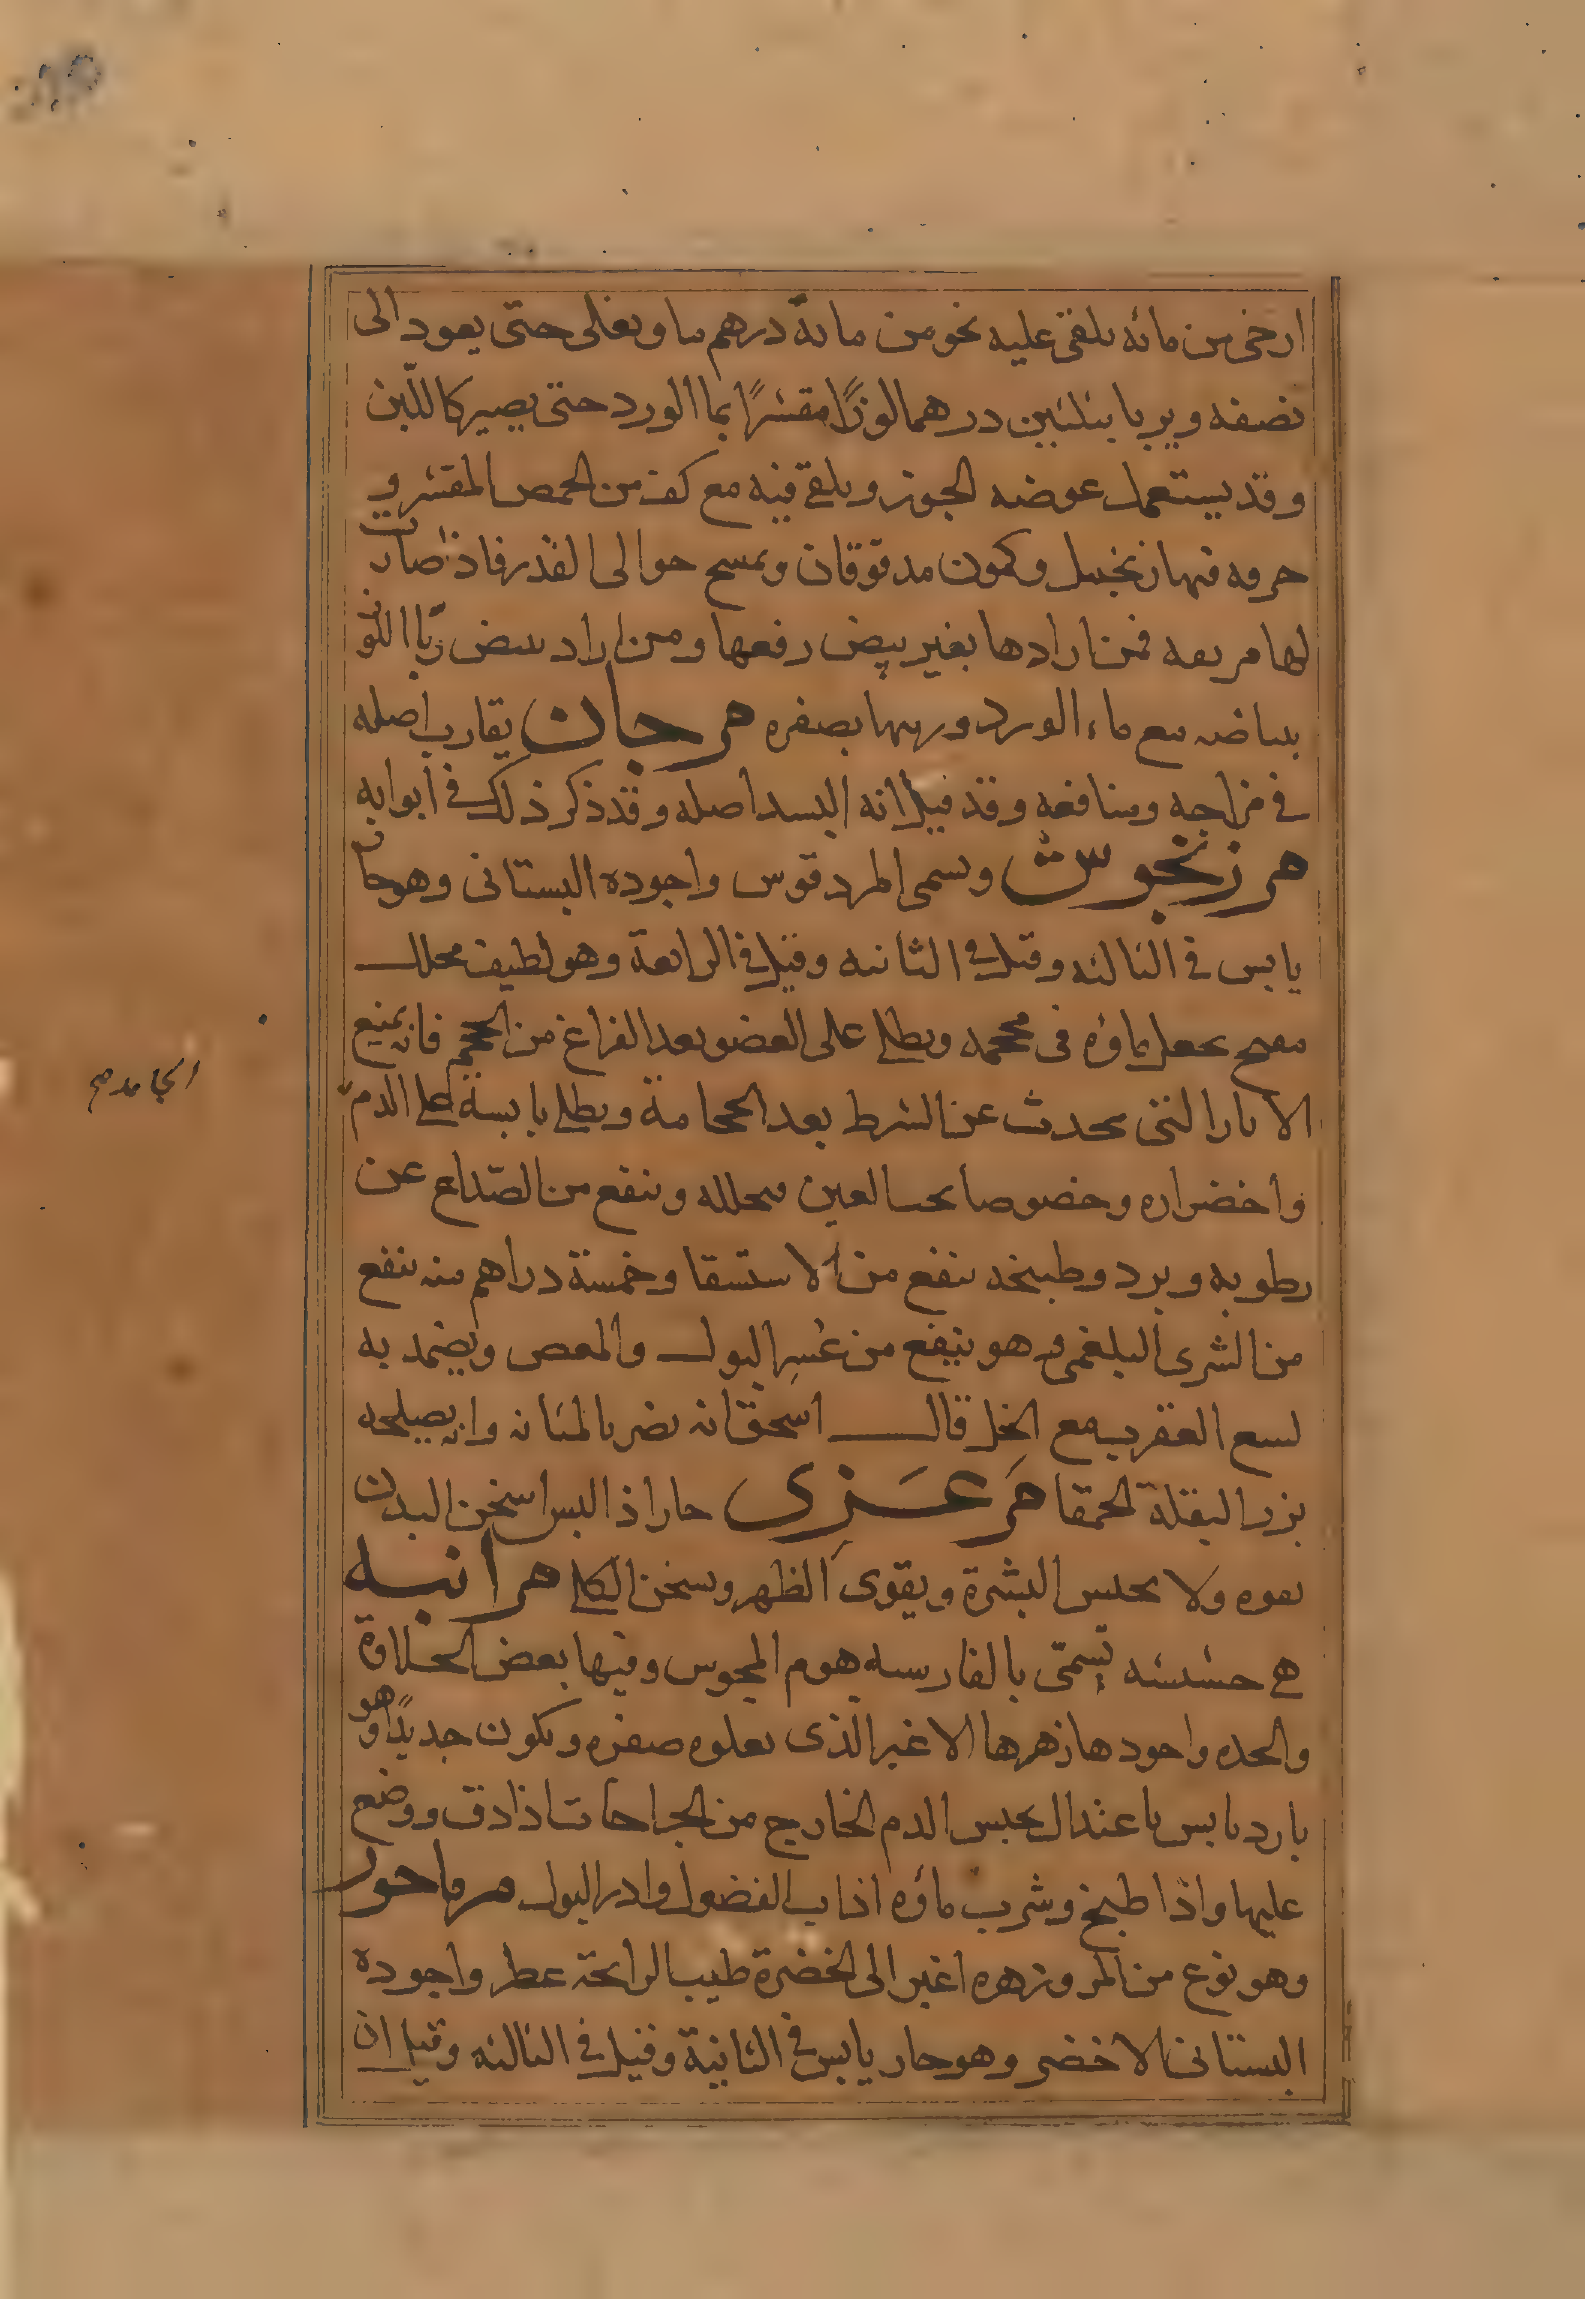 ارخى من مائه يلقى عليه نحو من مائة درهم ما ويغلى حتى يعود الى
نصفه ويربا بثلثين درهما لوزًا مقشرًا بما الورد حتى يصير كاللبن
وقد يستعمل عوضه الجوز ويلقى فيه مع كف من الحمص المقشر و
حرمه فيها زنجبيل وكمون مدقوقان ويمسح حوالى القدر فاذا صارت
لها مريعه فمن ارادها بغير بيض رفعها ومن اراد ببيض ربّا اللوز
ببياضه مع ماء الورد وربيها بصفره مرجان يقارب اصله
فى مزاجه ومنافعه وقد قيل انه البسد اصله وقد ذكر ذلك فى ابوابه
مرزنجوش ويسمى المردقوس واجوده البستانى وهو حار
يابس فى الثالثه وقيل فى الثانيه وقيل فى الرابعة وهو لطيف محلل
مفتح يجعل ماؤه فى محجمه ويطلى على العضو بعد الفراغ من الحجم فانه يمنع
الاثار التى تحدث عن الشرط بعد الحجامة ويطلى يابسة على الدم
الجامد صح
واخضراره وخصوصا تحت العين فيحلله وينفع من الصّداع عن
رطوبه وبرد وطبيخه ينفع من الاستسقا وخمسة دراهم منه ينفع
من الشرى البلغمى وهو ينفع من عُسر البول والمغص ويضمد به
لسع العقرب مع الخل قال اسحق انه يضر بالمثانه وانه يصلحه
بزر البقلة الحمقا مَرعَزِى حار اذا لبس اسخن البدن
بقوه ولا يحبس البشرة ويقوى الظهر ويسخن الكلى مرانيه
هى حشيشه تسمّى بالفارسيه هوم المجوس وفيها بعض الحلاوة
والحده واجودها زهرها الاغبر الذى يعلوه صفره ويكون جديدًا وهو
بارد يابس باعتدال يحبس الدم الخارج من الجراحات اذا دق ووضع
عليها واذا طبخ وشرب ماؤه اذاب الفضول وادر البول مرماحور
وهو نوع من المرو زهره اغبر الى الخضرة طيب الرائحة عطر واجوده
البستانى الاخضر وهو حار يابس فى الثانية وقيل فى الثالثه وقيل ان